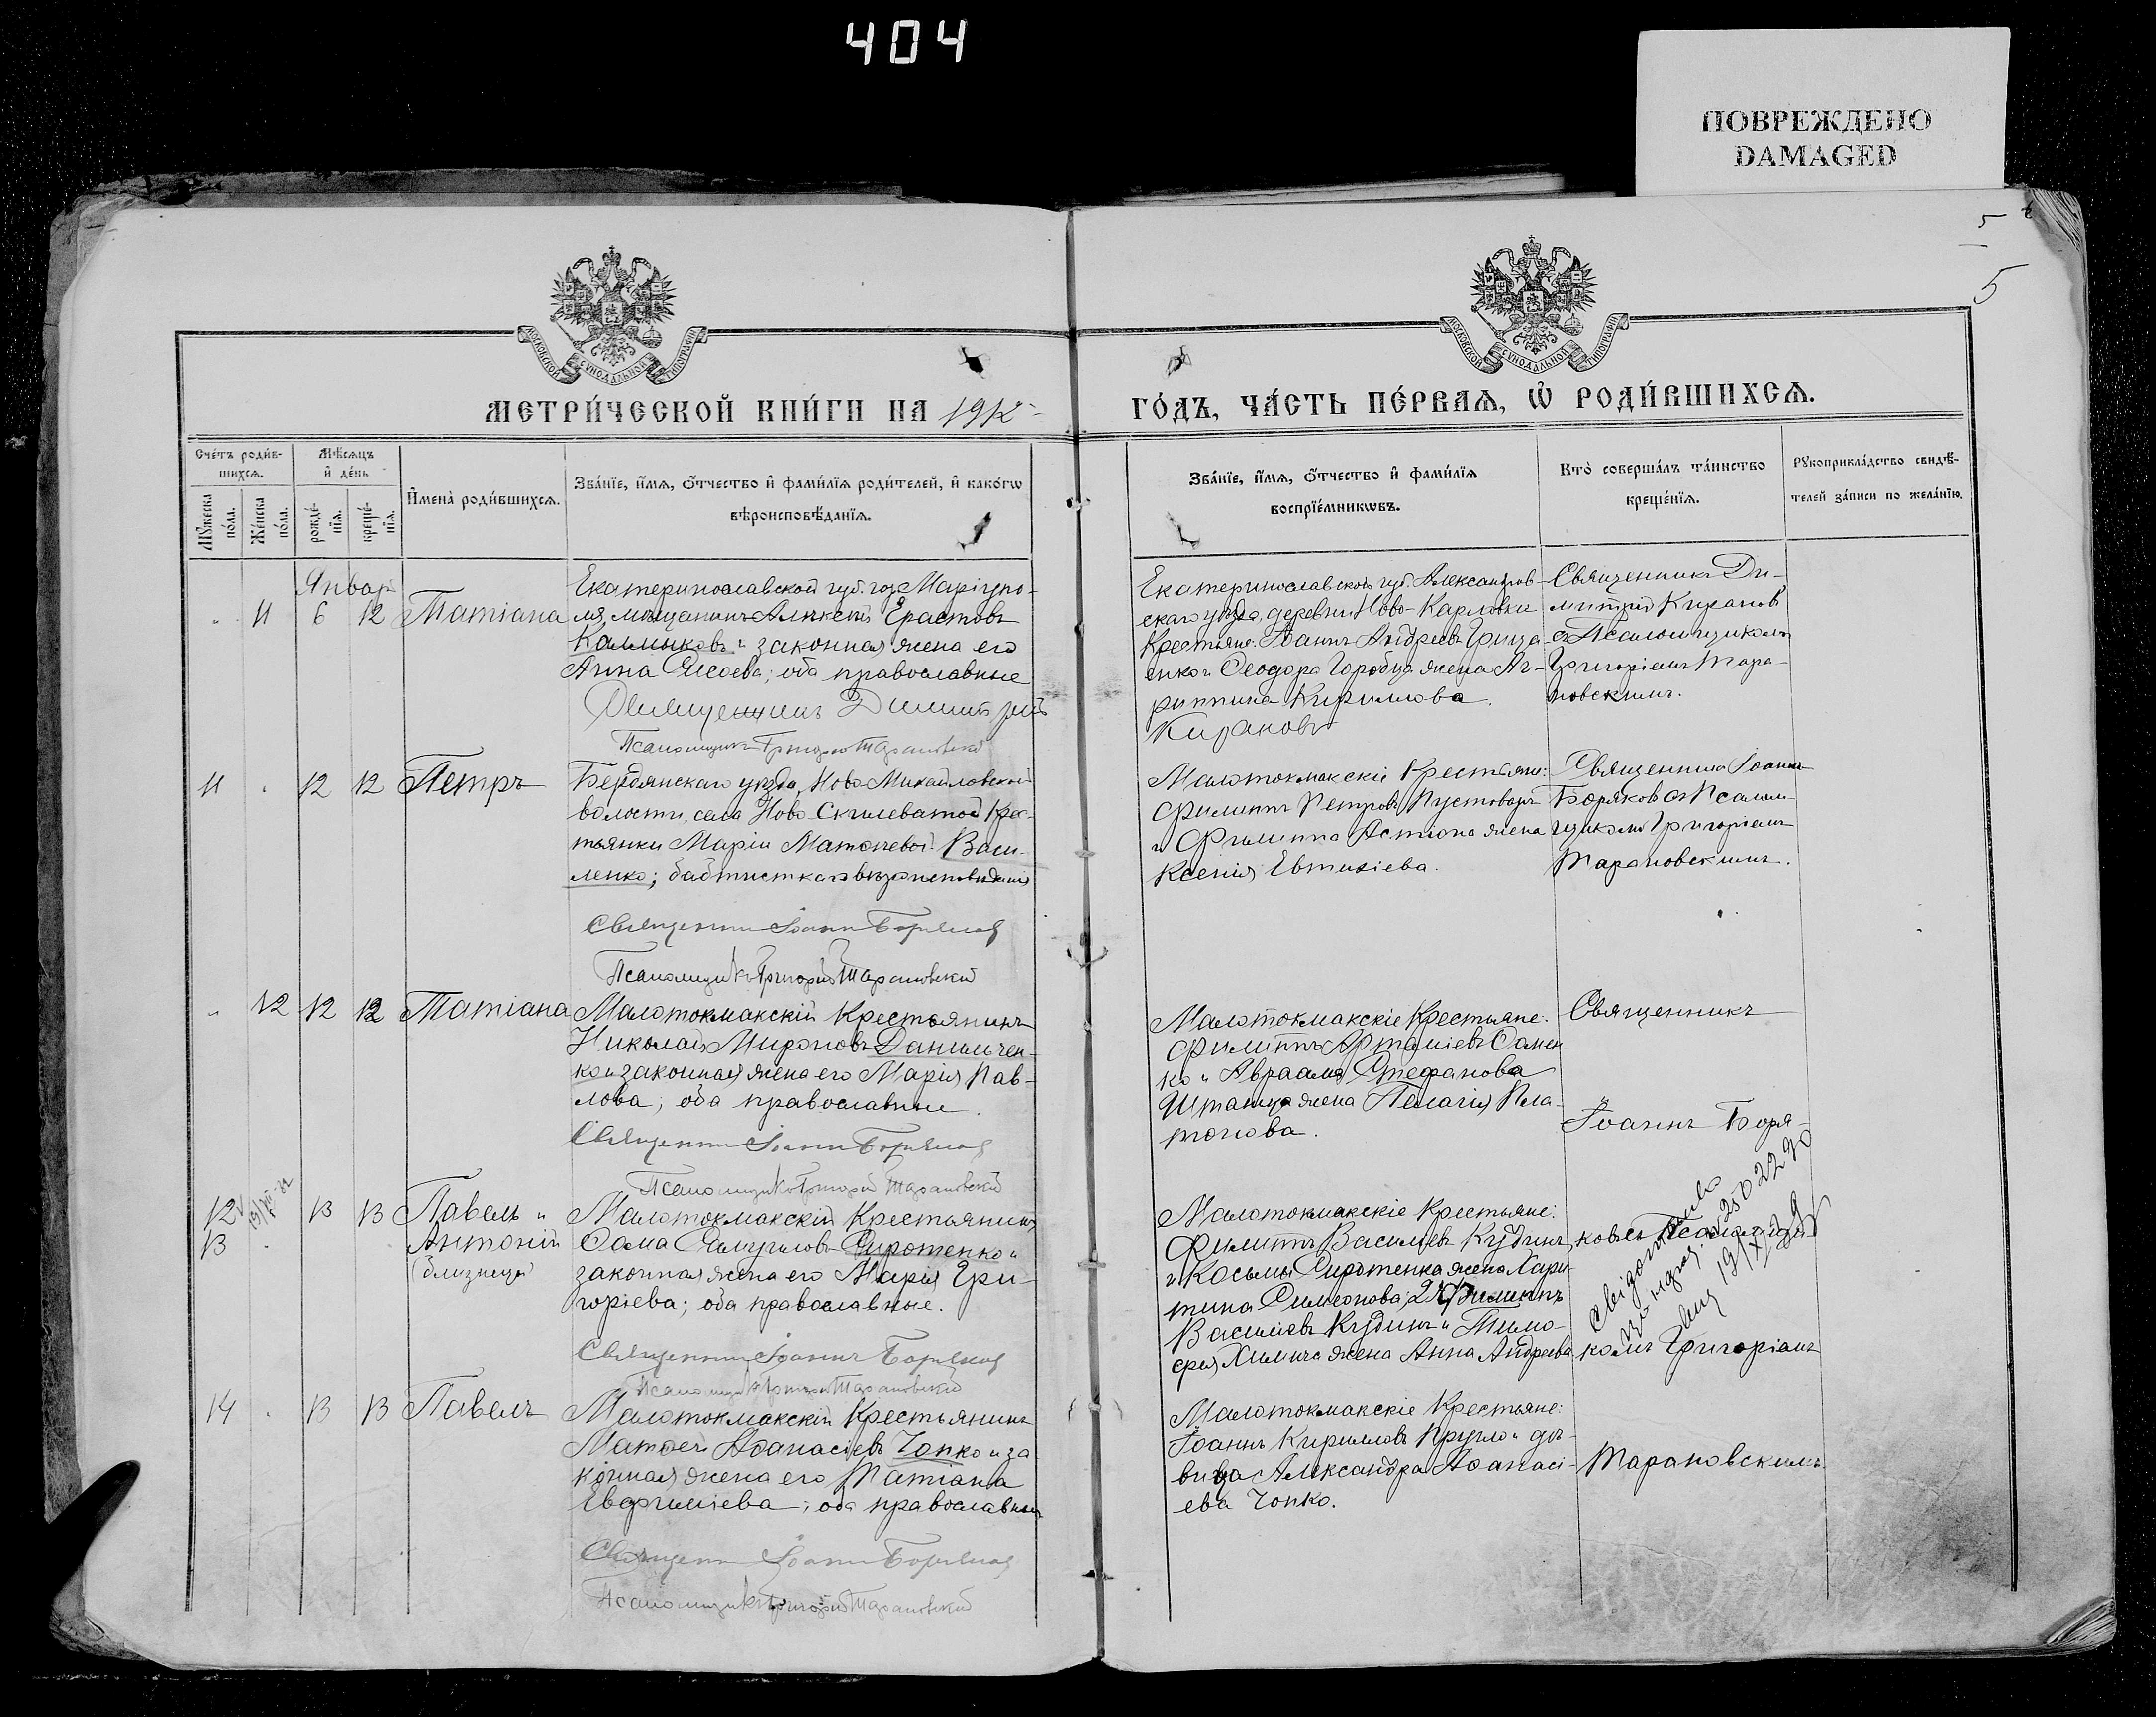 404
ПОВРЕЖДЕНО
DAMAGED
5
5
МОСКОВСКОЙ СѴНОДАЛЬНОЙ ТИПОГРАФІИ
МОСКОВСКОЙ СѴНОДАЛЬНОЙ ТИПОГРАФІИ
МЕТРИ́ЧЕСКОЙ КНИ́ГИ НА 1912
ГО́ДЪ, ЧА́СТЬ ПЕ́РВАЯ, Ѡ РОДИ́ВШИХСЯ.
Сче́тъ роди́в-
шихся.
Мѹжеска по́ла.
Же́нска по́ла.
Мѣсяцъ
и де́нь
рожде́-
нїя.
креще́-
нїя.
Имена̀ роди́вшихся.
Зва́нїе, и́мя, о́тчество и фами́лїя роди́телей, и како́гѡ
вѣроисповѣ́данїя.
Зва́нїе, и́мя, о́тчество и фами́лїя
воспрїе́мникѡвъ.
Кто̀ соверша́лъ та́инство
креще́нїя.
Рѹкоприкла́дство свидѣ́-
телей за́писи по жела́нїю.
Январь
" 11 6 12 Татіана
Екатеринославской губ. гор. Маріупо-
ля, мѣщанинъ Алексѣй Ерастовъ
Калмыковъ и законная жена его
Анна Елісѣева; оба православные
Священникъ Димитрій
Кирановъ
Псаломщикъ Григорій Тарановскій
Екатеринославской губ. Александров-
скаго уѣзда, деревни Ново-Карловки
Крестьяне: Іоаннъ Андреевъ Грица
енко и Ѳеодора Горобца жена Аг-
риппина Кириллова.
Священникъ Ди-
митрій Кирановъ
съ Псаломщикомъ
Григоріемъ Тара-
новскимъ.
11 " 12 12 Петръ
Бердянскаго уѣзда, Ново-Михайловской
волости, села Ново-Скилеватой Крес-
тьянки Маріи Матѳеевой Васи-
ленко; баптистскаго вѣроисповѣданія
Священникъ Іоаннъ Боряковъ
Псаломщикъ Григорій Тарановскій
Малотокмакскіе Крестьяне:
Филиппъ Петровъ Пустоваръ
и Филиппа Астіона жена
Ксенія Евтихіева.
Священникъ Іоаннъ
Боряковъ съ Псалом-
щикомъ Григоріемъ
Тарановскимъ.
" 12 12 12 Татіана
Малотокмакскій Крестьянинъ
Николай Мироновъ Данильчен-
ко и законная жена его Марія Пав-
лова; оба православные.
Священникъ Іоаннъ Боряковъ
Псаломщикъ Григорій Тарановскій
Малотокмакскіе Крестьяне:
Филиппъ Арталіевъ Самен
ко и Авраама Стефанова
Штанца жена Пелагія Пла-
тонова.
Священникъ
Іоаннъ Боря-
12 13 13 Павелъ и
13 " Антоній
(близнецы)
Малотокмакскій Крестьянинъ
Сама Самуиловъ Сиротенко и
законная жена его Марія Гри-
горіева; оба православные.
Священникъ Іоаннъ Боряковъ
Псаломщикъ Григорій Тарановскій
Малотокмакскіе Крестьяне:
Филиппъ Василіевъ Кудинъ
и Косьмы Сиротенка жена Хари-
тина Симеонова; 2) Филиппъ
Василіевъ Кудинъ и Тимо-
ѳея Химича жена Анна Андреева
ковъ съ Псаломщи-
комъ Григоріемъ
14 " 13 13 Павелъ
Малотокмакскій Крестьянинъ
Матѳей Аѳанасіевъ Чопко и за
конная жена его Татіана
Евфиміева; оба православные
Священникъ Іоаннъ Боряковъ
Псаломщикъ Григорій Тарановскій
Малотокмакскіе Крестьяне:
Іоаннъ Кирилловъ Кругло и дѣ-
вица Александра Аѳанасі-
ева Чопко.
Тарановскимъ.